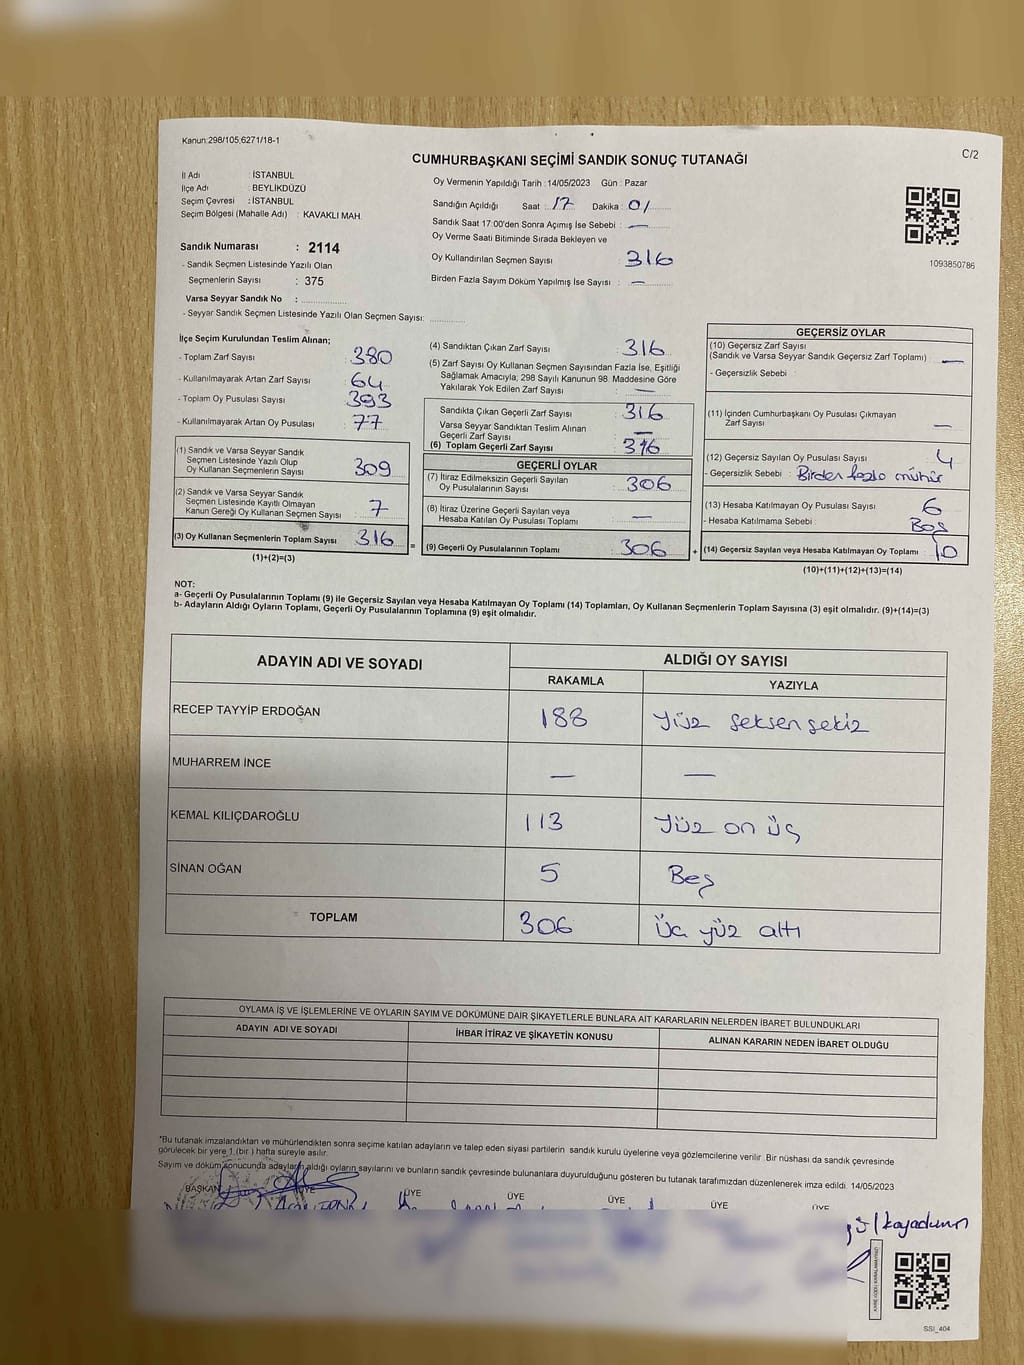 Kanun:298/105,6271/18-1
C/2
CUMHURBAŞKANI SEÇİMİ SANDIK SONUÇ TUTANAĞI
İl Adı : İSTANBUL
İlçe Adı : BEYLİKDÜZÜ
Seçim Çevresi : İSTANBUL
Seçim Bölgesi (Mahalle Adı) : KAVAKLI MAH.
Sandık Numarası : 2114
- Sandık Seçmen Listesinde Yazılı Olan
Seçmenlerin Sayısı : 375
Varsa Seyyar Sandık No :
- Seyyar Sandık Seçmen Listesinde Yazılı Olan Seçmen Sayısı:
Oy Vermenin Yapıldığı Tarih : 14/05/2023 Gün : Pazar
Sandığın Açıldığı Saat : 17 Dakika : 01
Sandık Saat 17:00'den Sonra Açımış İse Sebebi : —
Oy Verme Saati Bitiminde Sırada Bekleyen ve
Oy Kullandırılan Seçmen Sayısı : 316
Birden Fazla Sayım Döküm Yapılmış İse Sayısı : —
1093850786
İlçe Seçim Kurulundan Teslim Alınan;
- Toplam Zarf Sayısı : 380
- Kullanılmayarak Artan Zarf Sayısı : 64
- Toplam Oy Pusulası Sayısı : 393
- Kullanılmayarak Artan Oy Pusulası : 77
(1) Sandık ve Varsa Seyyar Sandık
Seçmen Listesinde Yazılı Olup
Oy Kullanan Seçmenlerin Sayısı : 309
(2) Sandık ve Varsa Seyyar Sandık
Seçmen Listesinde Kayıtlı Olmayan
Kanun Gereği Oy Kullanan Seçmen Sayısı : 7
(3) Oy Kullanan Seçmenlerin Toplam Sayısı : 316
(1)+(2)=(3)
(4) Sandıktan Çıkan Zarf Sayısı : 316
(5) Zarf Sayısı Oy Kullanan Seçmen Sayısından Fazla İse, Eşitliği
Sağlamak Amacıyla; 298 Sayılı Kanunun 98. Maddesine Göre
Yakılarak Yok Edilen Zarf Sayısı : —
Sandıkta Çıkan Geçerli Zarf Sayısı : 316
Varsa Seyyar Sandıktan Teslim Alınan
Geçerli Zarf Sayısı : —
(6) Toplam Geçerli Zarf Sayısı : 316
GEÇERLİ OYLAR
(7) İtiraz Edilmeksizin Geçerli Sayılan
Oy Pusulalarının Sayısı : 306
(8) İtiraz Üzerine Geçerli Sayılan veya
Hesaba Katılan Oy Pusulası Toplamı : —
= (9) Geçerli Oy Pusulalarının Toplamı : 306 +
GEÇERSİZ OYLAR
(10) Geçersiz Zarf Sayısı
(Sandık ve Varsa Seyyar Sandık Geçersiz Zarf Toplamı) : —
- Geçersizlik Sebebi :
(11) İçinden Cumhurbaşkanı Oy Pusulası Çıkmayan
Zarf Sayısı : —
(12) Geçersiz Sayılan Oy Pusulası Sayısı : 4
- Geçersizlik Sebebi : Birden fazla mühür
(13) Hesaba Katılmayan Oy Pusulası Sayısı : 6
- Hesaba Katılmama Sebebi : Boş
(14) Geçersiz Sayılan veya Hesaba Katılmayan Oy Toplamı : 10
(10)+(11)+(12)+(13)=(14)
NOT:
a- Geçerli Oy Pusulalarının Toplamı (9) ile Geçersiz Sayılan veya Hesaba Katılmayan Oy Toplamı (14) Toplamları, Oy Kullanan Seçmenlerin Toplam Sayısına (3) eşit olmalıdır. (9)+(14)=(3)
b- Adayların Aldığı Oyların Toplamı, Geçerli Oy Pusulalarının Toplamına (9) eşit olmalıdır.
ADAYIN ADI VE SOYADI ALDIĞI OY SAYISI
RAKAMLA YAZIYLA
RECEP TAYYİP ERDOĞAN 188 Yüz seksen sekiz
MUHARREM İNCE — —
KEMAL KILIÇDAROĞLU 113 Yüz on üç
SİNAN OĞAN 5 Beş
TOPLAM 306 Üç yüz altı
OYLAMA İŞ VE İŞLEMLERİNE VE OYLARIN SAYIM VE DÖKÜMÜNE DAİR ŞİKAYETLERLE BUNLARA AİT KARARLARIN NELERDEN İBARET BULUNDUKLARI
ADAYIN ADI VE SOYADI İHBAR İTİRAZ VE ŞİKAYETİN KONUSU ALINAN KARARIN NEDEN İBARET OLDUĞU
*Bu tutanak imzalandıktan ve mühürlendikten sonra seçime katılan adayların ve talep eden siyasi partilerin sandık kurulu üyelerine veya gözlemcilerine verilir .Bir nüshası da sandık çevresinde
görülecek bir yere 1 (bir ) hafta süreyle asılır.
Sayım ve döküm sonucunda adayların aldığı oyların sayılarını ve bunların sandık çevresinde bulunanlara duyurulduğunu gösteren bu tutanak tarafımızdan düzenlenerek imza edildi. 14/05/2023
BAŞKAN ÜYE ÜYE ÜYE ÜYE ÜYE ÜYE
SSİ_404